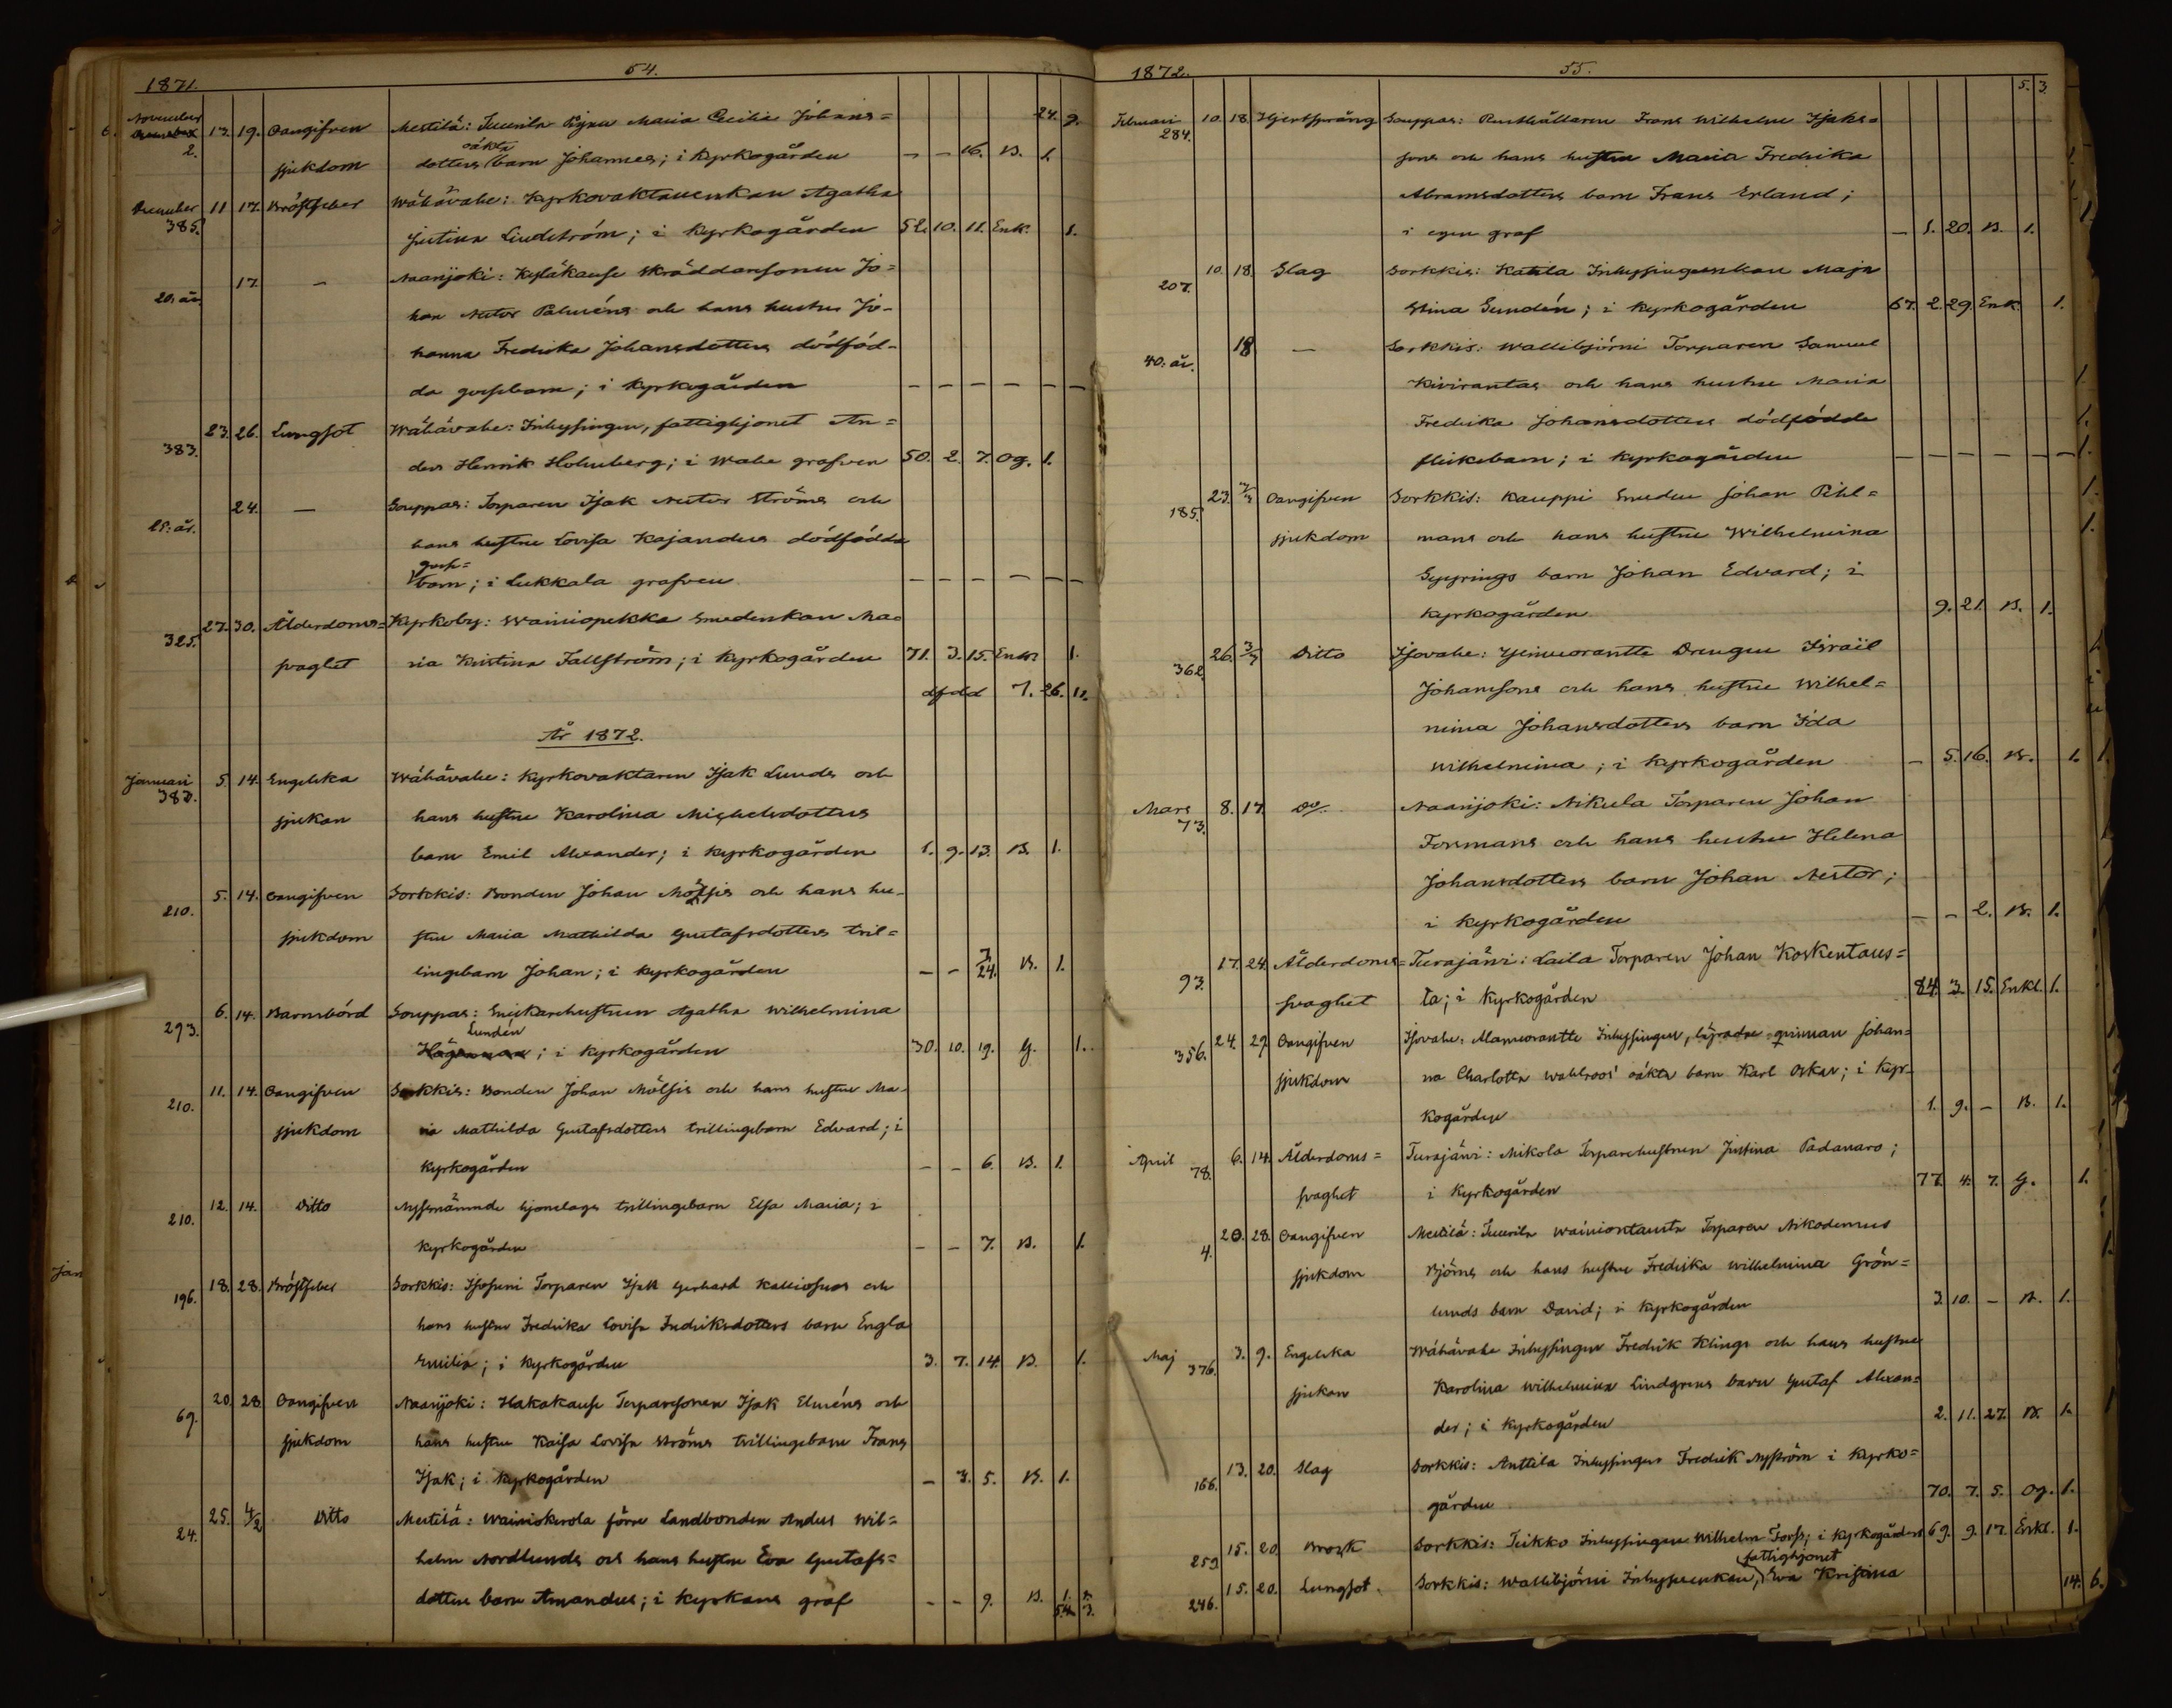 54.
1871.
24. 9.
November 13. 19. Oangifven Mertilä: Juurila Pigan Maria Cecilia Johans=
2. sjukdom dotters oäkta barn Johannes; i kyrkogården — — 16. B. 1.
December 11 17. Bröstfeber Wähävahe: Kyrkovaktarenkan Agatha
385. Justina Lindström; i kyrkogården 52. 10. 11. Enk. 1.
17. — Naarijoki: Kyläkause Skräddaresonen Jo=
20. år. han Nestor Palméns och hans hustru Jo-
hanna Fredrika Johansdotters dödföd-
da gossebarn; i kyrkogården — — — — — —
23. 26. Lungsot Wähävahe: Inhysingen, fattighjonet An=
383. ders Henrik Holmberg; i Wahe grafven 50. 2. 7. Og. 1.
24. — Souppas: Torparen Isak Nestor Ströms och
25. år. hans hustru Lovisa Kajanders dödfödda
gosse=
barn; i Lukkala grafven — — — — — —
27. 30. Ålderdoms= Kyrkoby: Wainiopekka Smedenkan Ma=
325. svaghet ria Kristina Fallström; i kyrkogården 71. 3. 15. Enk. 1.
dfdd 7. 26. 11.
År 1872.
Januari 5. 14. Engelska Wähävahe: Kyrkovaktaren Isak Lunds och
382. sjukan hans hustru Karolina Michelsdotters
barn Emil Alexander; i kyrkogården 1. 9. 13. B. 1.
5. 14. Oangifven Sorkkis: Bonden Johan Mölsis och hans hu-
210. sjukdom stru Maria Mathilda Gustafsdotters tril=
lingebarn Johan; i kyrkogården — — 7/24. B. 1.
6. 14. Barnsbörd Souppas: Snickarehustrun Agatha Wilhelmina
293. Lundén
; i kyrkogården 30. 10. 19. G. 1.
11. 14. Oangifven Sorkkis: Bonden Johan Mölsis och hans hustru Ma-
210. sjukdom ria Mathilda Gustafsdotters trillingebarn Edvard; i
kyrkogården — — 6. B. 1.
12. 14. Ditto Nyssnämnde hjonelags trillingebarn Elsa Maria; i
210. kyrkogården — — 7. B. 1.
18. 28. Bröstfeber Sorkkis: Torparen Isak Gerhard Kalliosuos och
196. hans hustru Fredrika Lovisa Fredriksdotters barn Engla
Emilia; i kyrkogården 3. 7. 14. B. 1.
20. 28. Oangifven Naarijoki: Hakakause Torparesonen Isak Elméns och
69. sjukdom hans hustru Kaisa Lovisa Ströms tvillingebarn Frans
Isak; i kyrkogården — 3. 5. B. 1.
25. 4/2 Ditto Mertilä: Wainiokerola förre Landbonden Anders Wil=
24. helm Nordlunds och hans hustru Eva Gustafs=
dotters barn Amandus; i kyrkans graf — — 9. B. 1.
5.4. 3.
1872. 55.
5. 3.
Februari 10. 18. Hjertsprång Souppas: Rusthållaren Frans Wilhelm Isaks=
284. sons och hans hustru Maria Fredrika
Abramsdotters barn Frans Erland;
i egen graf — 1. 20. B. 1.
10. 18. Slag Sorkkis: Katila Inhysingeenkan Maja
207. Stina Sundén; i kyrkogården 67. 2. 29. Enk. 1.
18 — Sorkkis: Wallibjörni Torparen Samuel
40. år. Kivirantas och hans hustru Maria
Fredrika Johansdotters dödfödda
flickebarn; i kyrkogården — — — — — —
23. 3/3 Oangifven Sorkkis: Kauppi Smeden Johan Pihl=
185. sjukdom mans och hans hustru Wilhelmina
barn Johan Edvard; i
kyrkogården 9. 21. B. 1.
26. 3/3 Ditto Isovahe: Drengen Israël
362. Johanssons och hans hustru Wilhel=
mina Johansdotters barn Ida
Wilhelmina; i kyrkogården — 5. 16. B. 1.
Mars 8. 17. Do. Naarijoki: Nikula Torparen Johan
73. Formans och hans hustru Helena
Johansdotters barn Johan Nestor;
i kyrkogården — — 2. B. 1.
17. 24. Ålderdoms= Turajärvi: Laila Torparen Johan Koskentaus=
93. svaghet ta; i kyrkogården 84. 3. 15. Enkl. 1.
24. 29. Oangifven Isovahe: Alamorantte Inhysingen, qvinnan Johan=
356. sjukdom na Charlotta Wahlroos' oäkta barn Karl Oskar; i kyr=
kogården 1. 9. — B. 1.
April 6. 14. Ålderdoms= Turajärvi: Mikola Torparehustrun Justina Padanaro;
78. svaghet i kyrkogården 77. 4. 7. G. 1.
20. 28. Oangifven Mertilä: Juurila Wainiontausta Torparen Nikodemus
4. sjukdom Björns och hans hustru Fredrika Wilhelmina Grön=
lunds barn David; i kyrkogården 3. 10. — B. 1.
Maj 3. 9. Engelska Wähävahe Inhysingen Fredrik Klings och hans hustru
376. sjukan Karolina Wilhelmina Lindgrens barn Gustaf Alexan=
der; i kyrkogården 2. 11. 27. B. 1.
13. 20. Slag Sorkkis: Anttila Inhysingen Fredrik Nyström i kyrko=
166. gården 70. 7. 5. Og. 1.
15. 20 Brosk Sorkkis: Teikko Inhysingen Wilhelm Forss; i kyrkogården 69. 9. 17. Enkl. 1.
259
fattighjonet
15. 20. Lungsot Sorkkis: Wallibjörni Inhyseenkan, Eva Kristina
246.
14. 6.